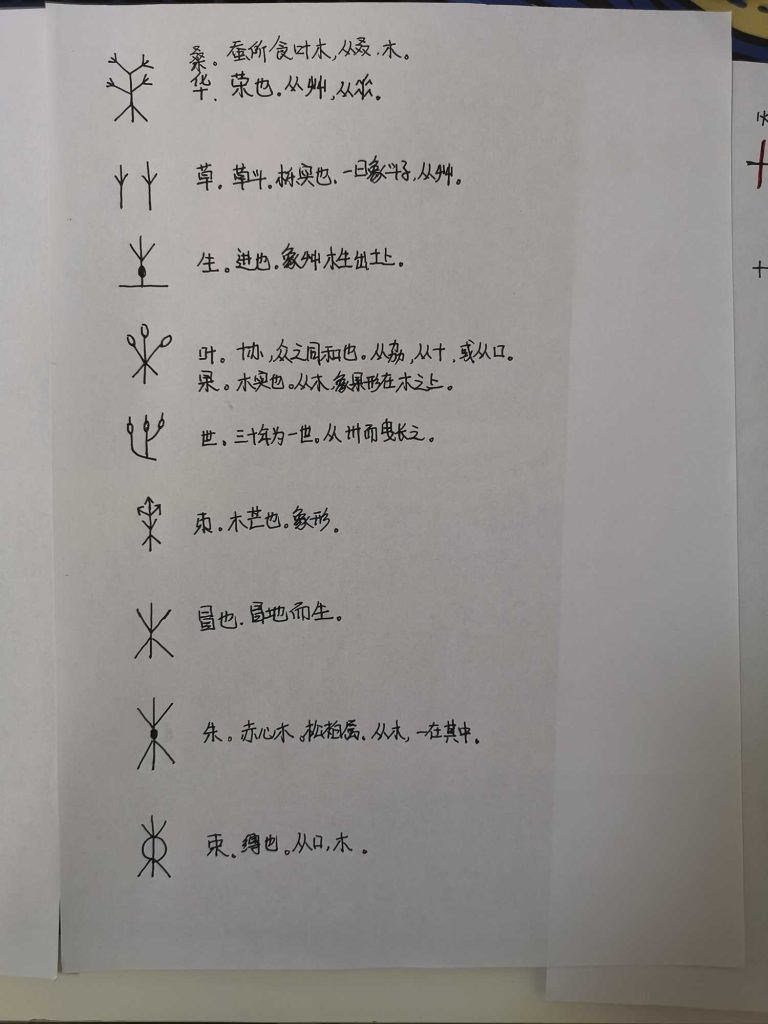 桑。蚕所食叶木,从叒、木。
华、荣也。从艸,从𠌶。
草。草斗。栎实也、一曰象斗子,从艸。
生。进也。象艸木生出土上。
叶。协,众之同和也。从劦,从十,或从口。
果。木实也。从木,象果形在木之上。
世。三十年为一世。从卅而曳长之。
朿。木芒也。象形。
冒也、冒地而生。
朱。赤心木。松柏属。从木,一在其中。
束。缚也。从口,木。